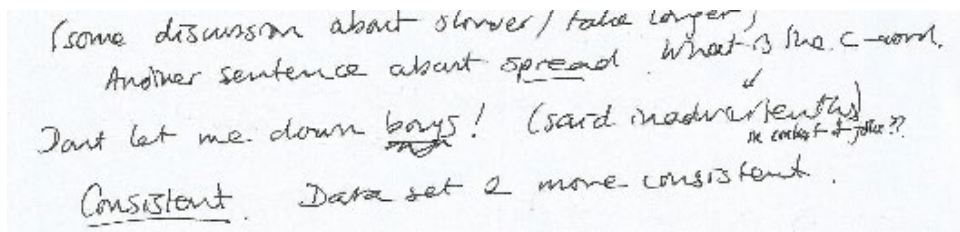 (some discussion about slower / take longer)
Another sentence about spread. What is the c-word.
Dont let me down boys! (said inadvertently)
in context of jokes??
Consistent. Data set 2 more consistent.